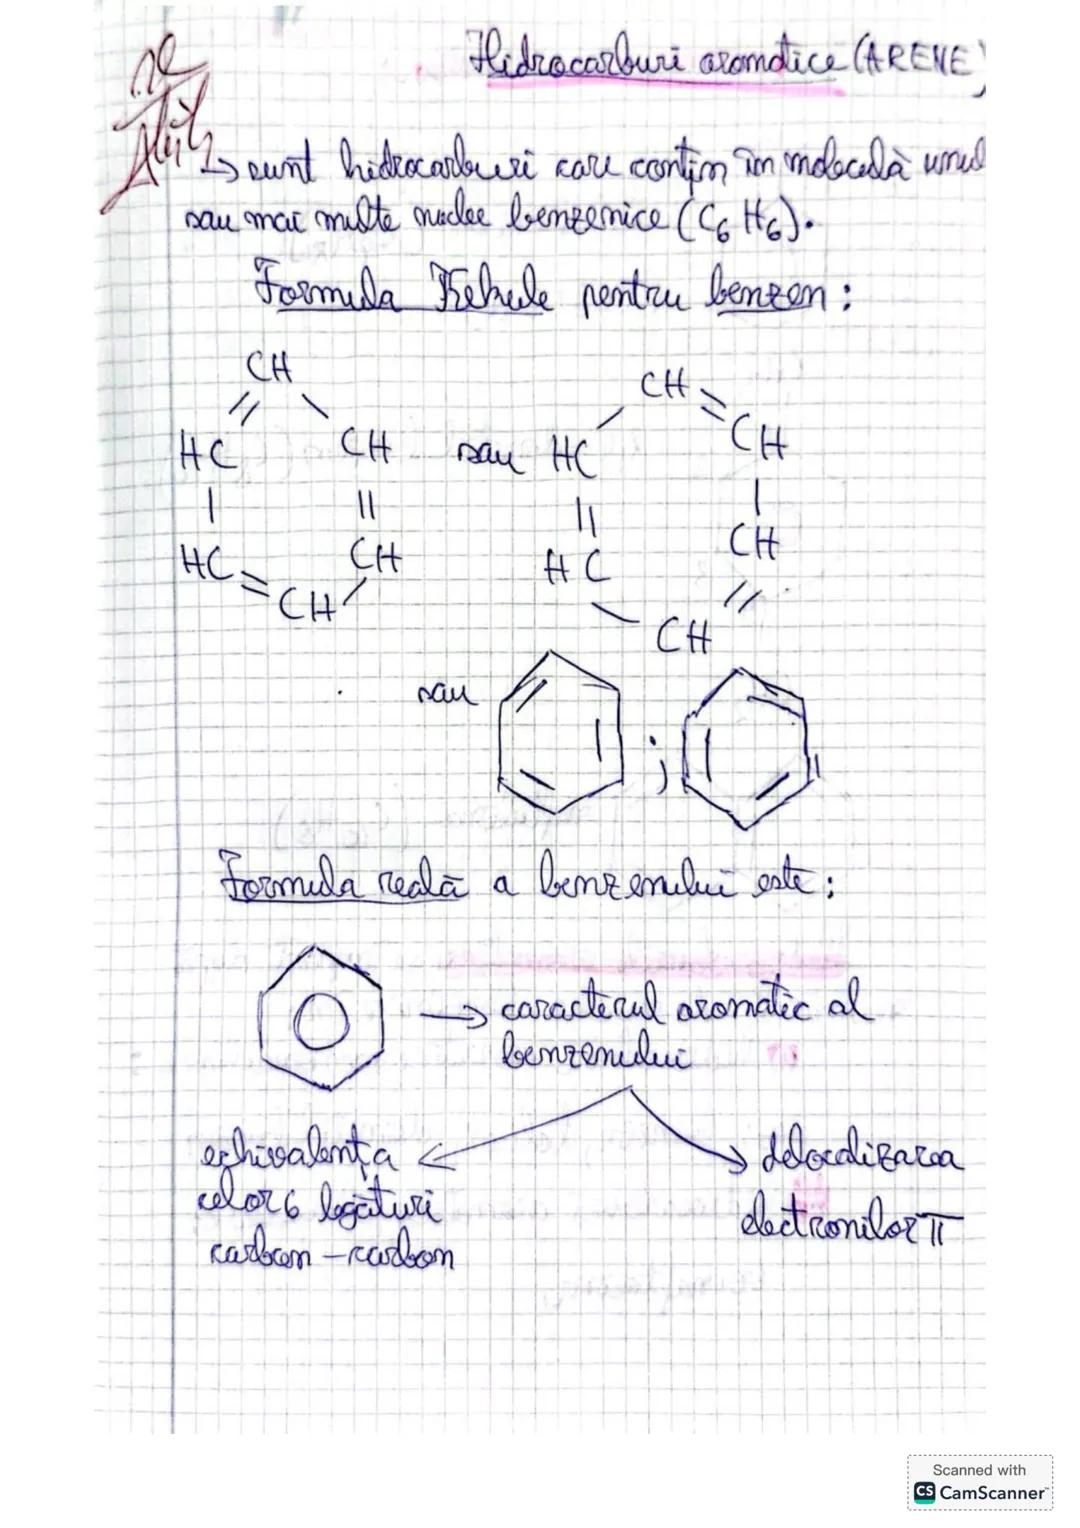 Hidrocarburi aromatice (ARENE)
→ sunt hidrocarburi care conțin în moleculă unul
sau mai multe nuclee benzenice (C6H6).
Formula Kekule pentru benzen:
CH
CH
HC
CH
sau
HC
CH
HC
CH
HC
CH
CH
CH
sau
;
Formula reală a benzenului este:
→ caracterul aromatic al
benzenului
echivalența
celor 6 legături
carbon – carbon
delocalizarea
electronilor π
Scanned with
CS CamScanner